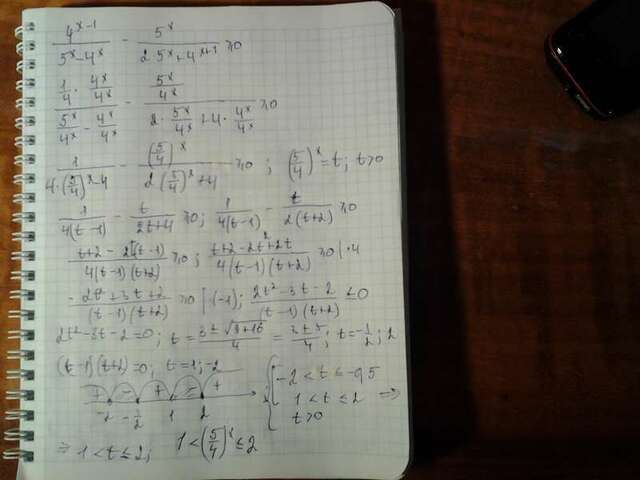 4^(x-1)/(5^x - 4^x) - 5^x/(2·5^x + 4^(x+1)) ≥ 0
(1/4 · 4^x/4^x)/(5^x/4^x - 4^x/4^x) - (5^x/4^x)/(2·5^x/4^x + 4·4^x/4^x) ≥ 0
1/(4·(5/4)^x - 4) - (5/4)^x/(2(5/4)^x + 4) ≥ 0 ; (5/4)^x = t; t > 0
1/(4(t-1)) - t/(2t+4) ≥ 0; 1/(4(t-1)) - t/(2(t+2)) ≥ 0
(t+2 - 2t(t-1))/(4(t-1)(t+2)) ≥ 0; (t+2-2t²+2t)/(4(t-1)(t+2)) ≥ 0 |·4
(-2t²+3t+2)/((t-1)(t+2)) ≥ 0 |·(-1); (2t²-3t-2)/((t-1)(t+2)) ≤ 0
2t²-3t-2=0; t = (3±√(9+16))/4 = (3±5)/4; t=-1/2; 2
(t-1)(t+2)=0; t=1; -2
+ - + - +
-2 -1/2 1 2
{ -2 < t ≤ -0,5
1 < t ≤ 2 ⇒
t > 0
⇒ 1 < t ≤ 2; 1 < (5/4)^x ≤ 2